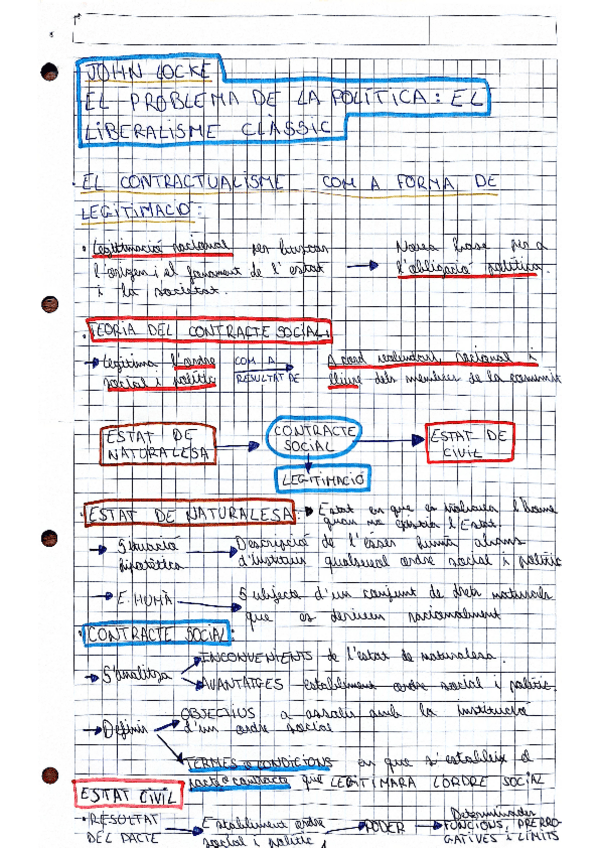 JOHN LOCKE
EL PROBLEMA DE LA POLÍTICA: EL
LIBERALISME CLÀSSIC
EL CONTRACTUALISME COM A FORMA DE
LEGITIMACIÓ:
• Legitimació racional per buscar
l'origen i el fonament de l'estat
i la societat.
Nova base per a
l'obligació política.
• TEORIA DEL CONTRACTE SOCIAL:
Legitima l'ordre
social i polític
COM A
RESULTAT DE
Acord voluntari, racional i
lliure dels membres de la comunit
ESTAT DE
NATURALESA
CONTRACTE
SOCIAL
ESTAT DE
CIVIL
LEGITIMACIÓ
• ESTAT DE NATURALESA:
Estat en que es trobava l'home
quan no existia l'Estat.
Situació
hipotètica
Descripció de l'ésser humà abans
d'instituir qualsevol ordre social i polític
E. HUMÀ
Subjecte d'un conjunt de drets naturals
que es deriven racionalment
• CONTRACTE SOCIAL:
S'analitza
INCONVENIENTS de l'estat de naturalesa.
AVANTATGES establiment ordre social i polític.
Definir
OBJECTIUS a assolir amb la institució
d'un ordre social
TERMES o CONDICIONS en que s'estableix el
pacte o contracte que LEGITIMARÀ L'ORDRE SOCIAL
ESTAT CIVIL
• RESULTAT
DEL PACTE
Establiment ordre
social i polític
PODER
Determinades
FUNCIONS, PRERRO-
GATIVES i LÍMITS